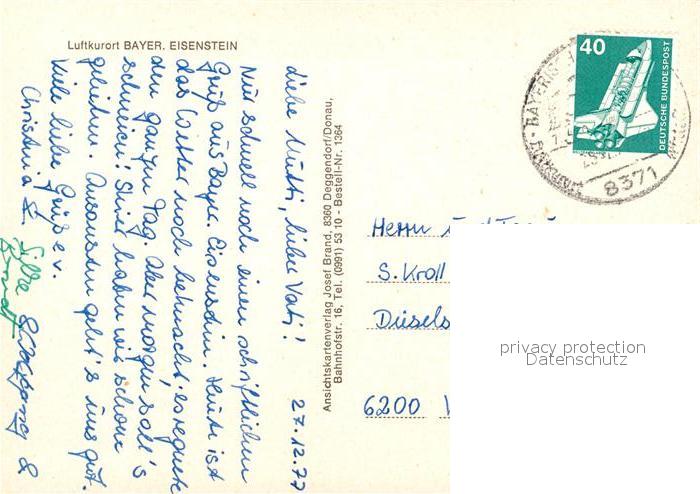 Luftkurort BAYER. EISENSTEIN
27.12.77
Liebe Mutti, lieber Vati!
Nur schnell noch einen schriftlichen
Gruß aus Bayr. Eisenstein. Heute ist
das Wetter noch es regnete
den ganzen Tag. Aber morgen soll's
schneien! Skier haben wir schon
geliehen. Ansonsten geht's uns gut.
Viele liebe Grüße v.
Christina &
Silke
Wolfgang &
Ansichtskartenverlag Josef Brand, 8360 Deggendorf/Donau,
Bahnhofstr. 16, Tel. (0991) 53 10 - Bestell-Nr. 1364
40
DEUTSCHE BUNDESPOST
BAYERISCH
8371
Herrn und
S. Kroll
6200
privacy protection
Datenschutz